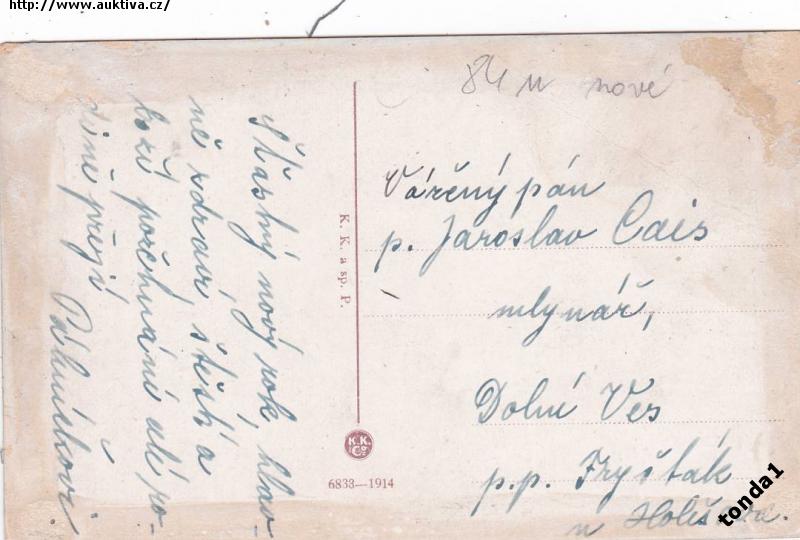 http://www.auktiva.cz/
84 nové
Šťastný nový rok, hlav-
ně zdraví, štěstí a
boží požehnání celé ro-
dině přejí
K. K. a sp. P.
K.K.
Co
6833—1914
Vážený pán
p. Jaroslav Cais
mlynář,
Dolní Ves
p.p. Fryšták
u Holešova.
tonda1